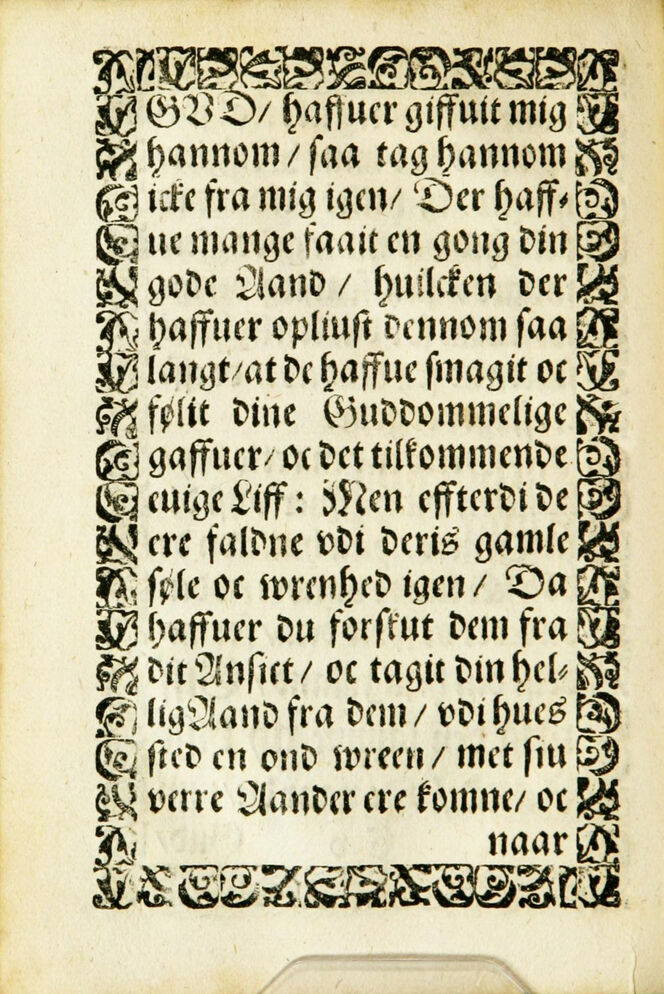 GVD/ haffuer giffuit mig
hannom / saa tag hannom
icke fra mig igen/ Der haff-
ue mange faait en gong din
gode Aand / huilcken der
haffuer opliust dennom saa
langt/at de haffue smagit oc
følit dine Guddommelige
gaffuer/ oc det tilkommende
euige Liff: Men effterdi de
ere faldne vdi deris gamle
søle oc wrenhed igen / Da
haffuer du forskut dem fra
dit Ansict / oc tagit din hel-
lig Aand fra dem / vdi hues
sted en ond wreen / met siu
verre Aander ere komne/ oc
naar